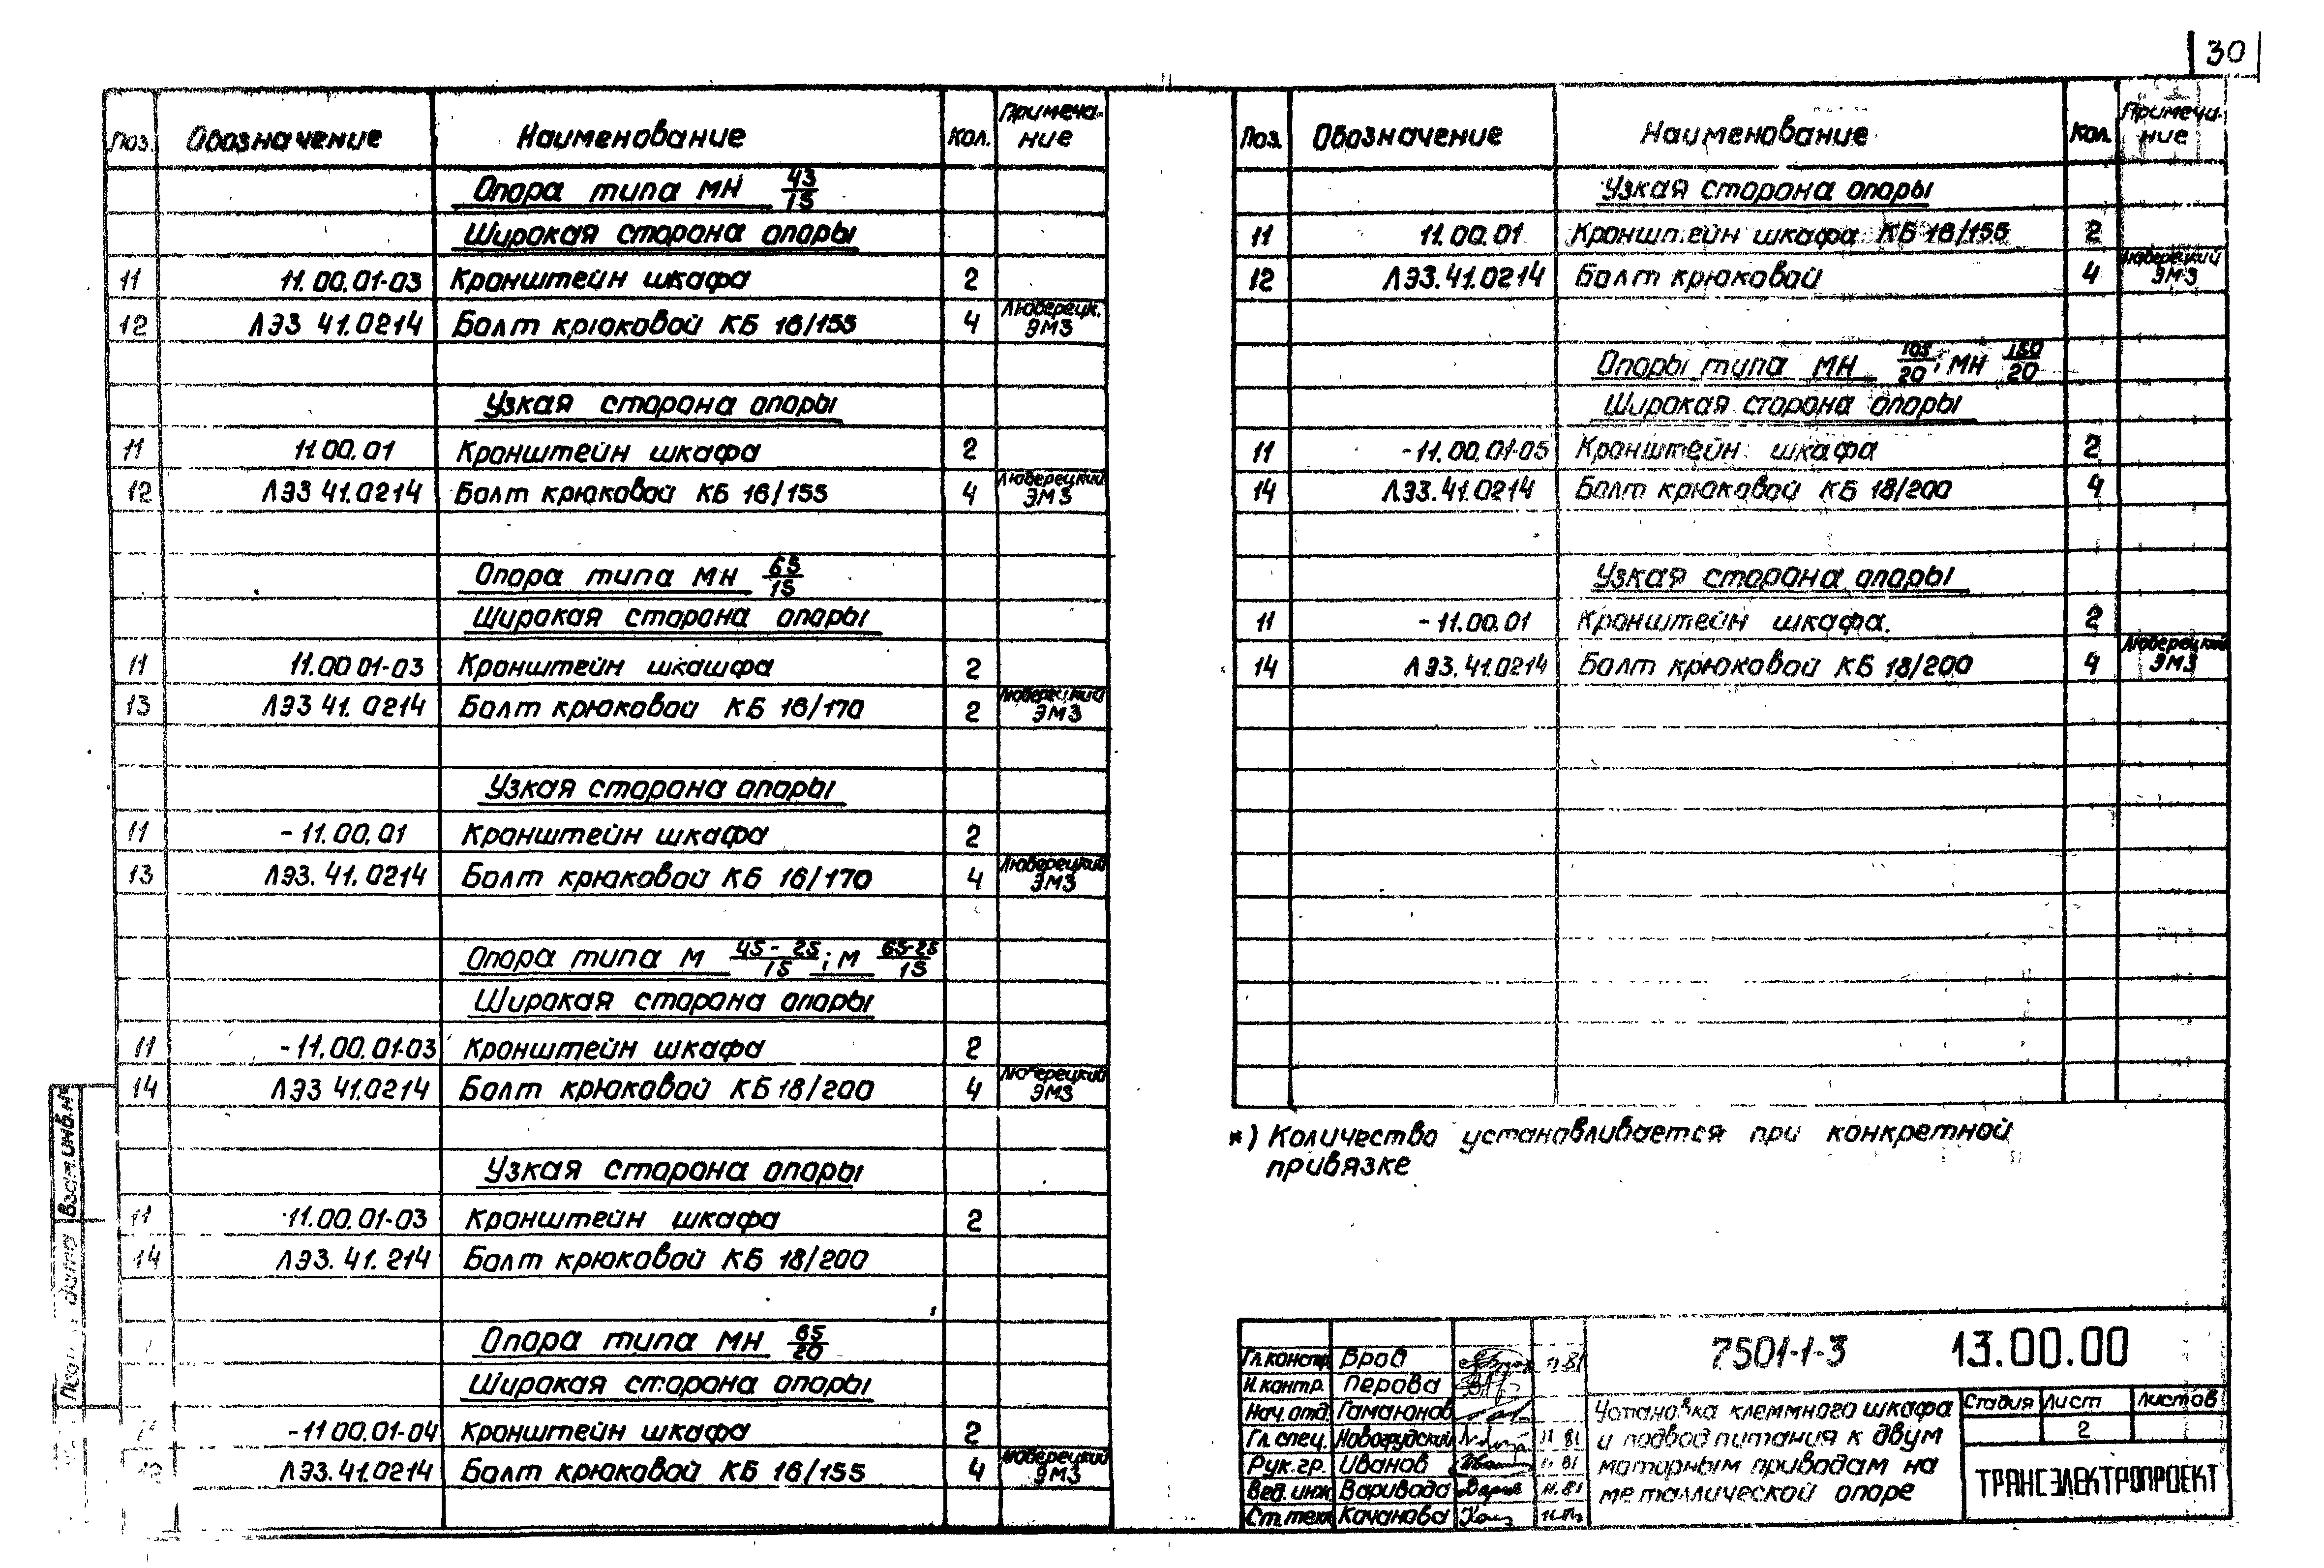 30
Поз. Обозначение Наименование Кол. Примеча-
ние
Опора типа МН 43/15
Широкая сторона опоры
11 11.00.01-03 Кронштейн шкафа 2
12 ЛЭЗ 41.0214 Болт крюковой КБ 16/155 4 Люберецк. ЭМЗ
Узкая сторона опоры
11 11.00.01 Кронштейн шкафа 2
12 ЛЭЗ 41.0214 Болт крюковой КБ 16/155 4 Люберецкий ЭМЗ
Опора типа МН 65/15
Широкая сторона опоры
11 11.00 01-03 Кронштейн шкашфа 2
13 ЛЭЗ 41. 0214 Болт крюковой КБ 16/170 2 Люберецкий ЭМЗ
Узкая сторона опоры
11 -11.00.01 Кронштейн шкафа 2
13 ЛЭЗ. 41. 0214 Болт крюковой КБ 16/170 4 Люберецкий ЭМЗ
Опора типа М 45-25/15; М 65-25/15
Широкая сторона опоры
11 -11.00.01-03 Кронштейн шкафа 2
14 ЛЭЗ 41.0214 Болт крюковой КБ 18/200 4 Люберецкий ЭМЗ
Узкая сторона опоры
11 -11.00.01-03 Кронштейн шкафа 2
14 ЛЭЗ. 41. 214 Болт крюковой КБ 18/200
Опора типа МН 65/20
Широкая сторона опоры
-11 00.01-04 Кронштейн шкафа 2
ЛЭЗ. 41.0214 Болт крюковой КБ 16/155 4 Люберецкий ЭМЗ
Поз. Обозначение Наименование Кол. Примеча-
ние
Узкая сторона опоры
11 11.00.01 Кронштейн шкафа КБ 16/155 2
12 ЛЭЗ.41.0214 Болт крюковой 4 Люберецкий ЭМЗ
Опоры типа МН 105/20; МН 150/20
Широкая сторона опоры
11 -11.00.01-05 Кронштейн шкафа 2
14 ЛЭЗ.41.0214 Болт крюковой КБ 18/200 4
Узкая сторона опоры
11 -11.00.01 Кронштейн шкафа. 2
14 ЛЭЗ.41.0214 Болт крюковой КБ 18/200 4 Люберецкий ЭМЗ
*) Количество устанавливается при конкретной
привязке
Взам.инв.№
дата
7501-1-3 13.00.00
Гл.констр. Вров 11.81
Н.контр. Перова
Нач.отд. Гамаюнов
Гл.спец. Новогрудский 11 81
Рук.гр. Иванов 11 81
Вед.инж. Варивода 11.81
Ст.техн. Качанова
Установка клеммного шкафа
и подвод питания к двум
моторным приводам на
металлической опоре
Стадия Лист Листов
2
ТРАНСЭЛЕКТРОПРОЕКТ